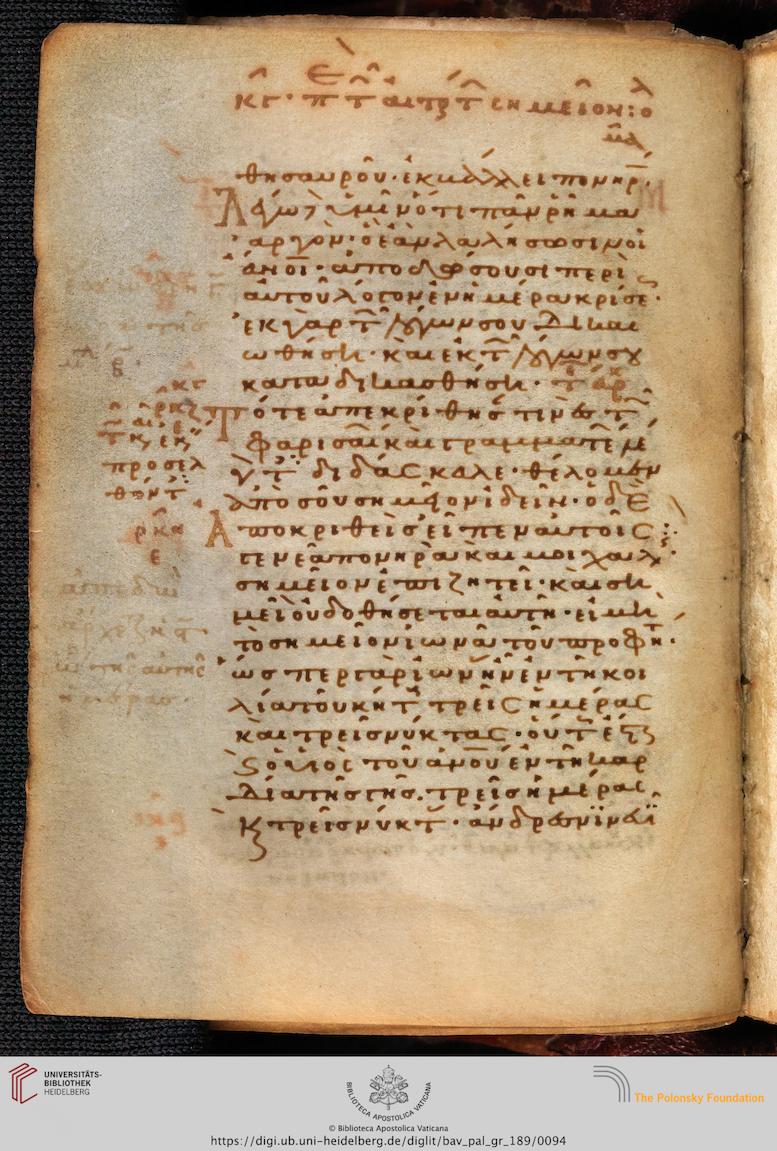 κγ· π τ αιτ τ σημεῖον:
θησαυροῦ· ἐκβάλλει πονηρ.
λέγω δὲ ὑμῖν ὅτι πᾶν ῥῆμα
ἀργὸν· ὃ ἐὰν λαλήσωσιν οἱ
ἄνοι· ἀποδώσουσι περὶ
αὐτοῦ λόγον ἐν ἡμέρα κρίσε·
ἐκ γὰρ τ λόγων σου δικαι
ωθήση· καὶ ἐκ τ λόγων σου
καταδικασθήση·
Τότε ἀπεκρίθησ τινὲσ τ
φαρισαί καὶ γραμματέ λέ
γοντ· διδάσκαλε· θέλομεν
ἀπὸ σοῦ σημεῖον ἰδεῖν· ὁ δὲ
Ἀποκριθεὶς εἶπεν αὐτοῖς
γενεὰ πονηρὰ καὶ μοιχαλ
σημεῖον ἐπιζητεῖ· καὶ ση
μεῖ οὐ δοθήσεται αὐτῆ· εἰ μὴ
τὸ σημεῖον ἰωνᾶ τοῦ προφή·
ὥσπερ γὰρ ἰων ἦν ἐν τῆ κοι
λία τοῦ κήτ τρεῖς ἡμέρας
καὶ τρεῖς νύκτας· οὕτ ἔσται
ὁ υἱὸς τοῦ ἀνου ἐν τῆ καρ
δία τῆς γῆς. τρεῖς ἡμέρας
κ τρεῖς νύκτ· ἄνδρες νινευῖ
κγ
ρκζ
προσελ
θόντ
ρκη
ε
UNIVERSITÄTS-
BIBLIOTHEK
HEIDELBERG
BIBLIOTECA APOSTOLICA VATICANA
The Polonsky Foundation
© Biblioteca Apostolica Vaticana
https://digi.ub.uni-heidelberg.de/diglit/bav_pal_gr_189/0094